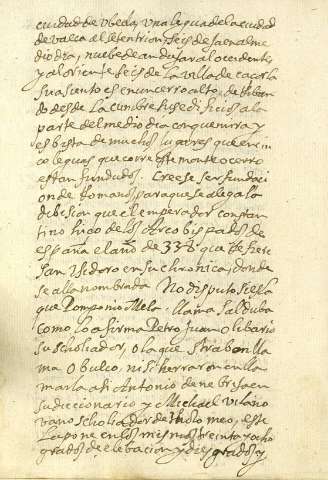 ciudad de Vbeda, Vna legua de la ciudad
de vaeca al setentrion, seis de Jaen al me
dio dia, nuebe de andujar al occidente
y al oriente seis de la Villa de caçorla
su asiento es en un cerro alto, de
do desde la cumbre sus edificios a la
parte del medio dia con que mira y
es bista de muchos lugares que en cin
co leguas que corre este monte o cerro
estan fundados. Creese ser fundaci
on de Romanos para que se alega la
dibision que el emperador constan
tino hiço de los Arcobispados de
españa el año de 338 que refiere
San Isidoro en su chronica, donde
se alla nombrada. No disputo si es la
que Pomponio Mela llama Salduba
como lo afirma Petro Juan Olibario
su scholiador, o la que Strabon lla
ma Obulco, ni si herraron en lla
marla asi Antonio de nebrija en
su diccionario y Michael Vilano
vano scholiador de Ptolomeo, este
la pone en los mismos treinta y ocho
grados de elebacion y diez grados y